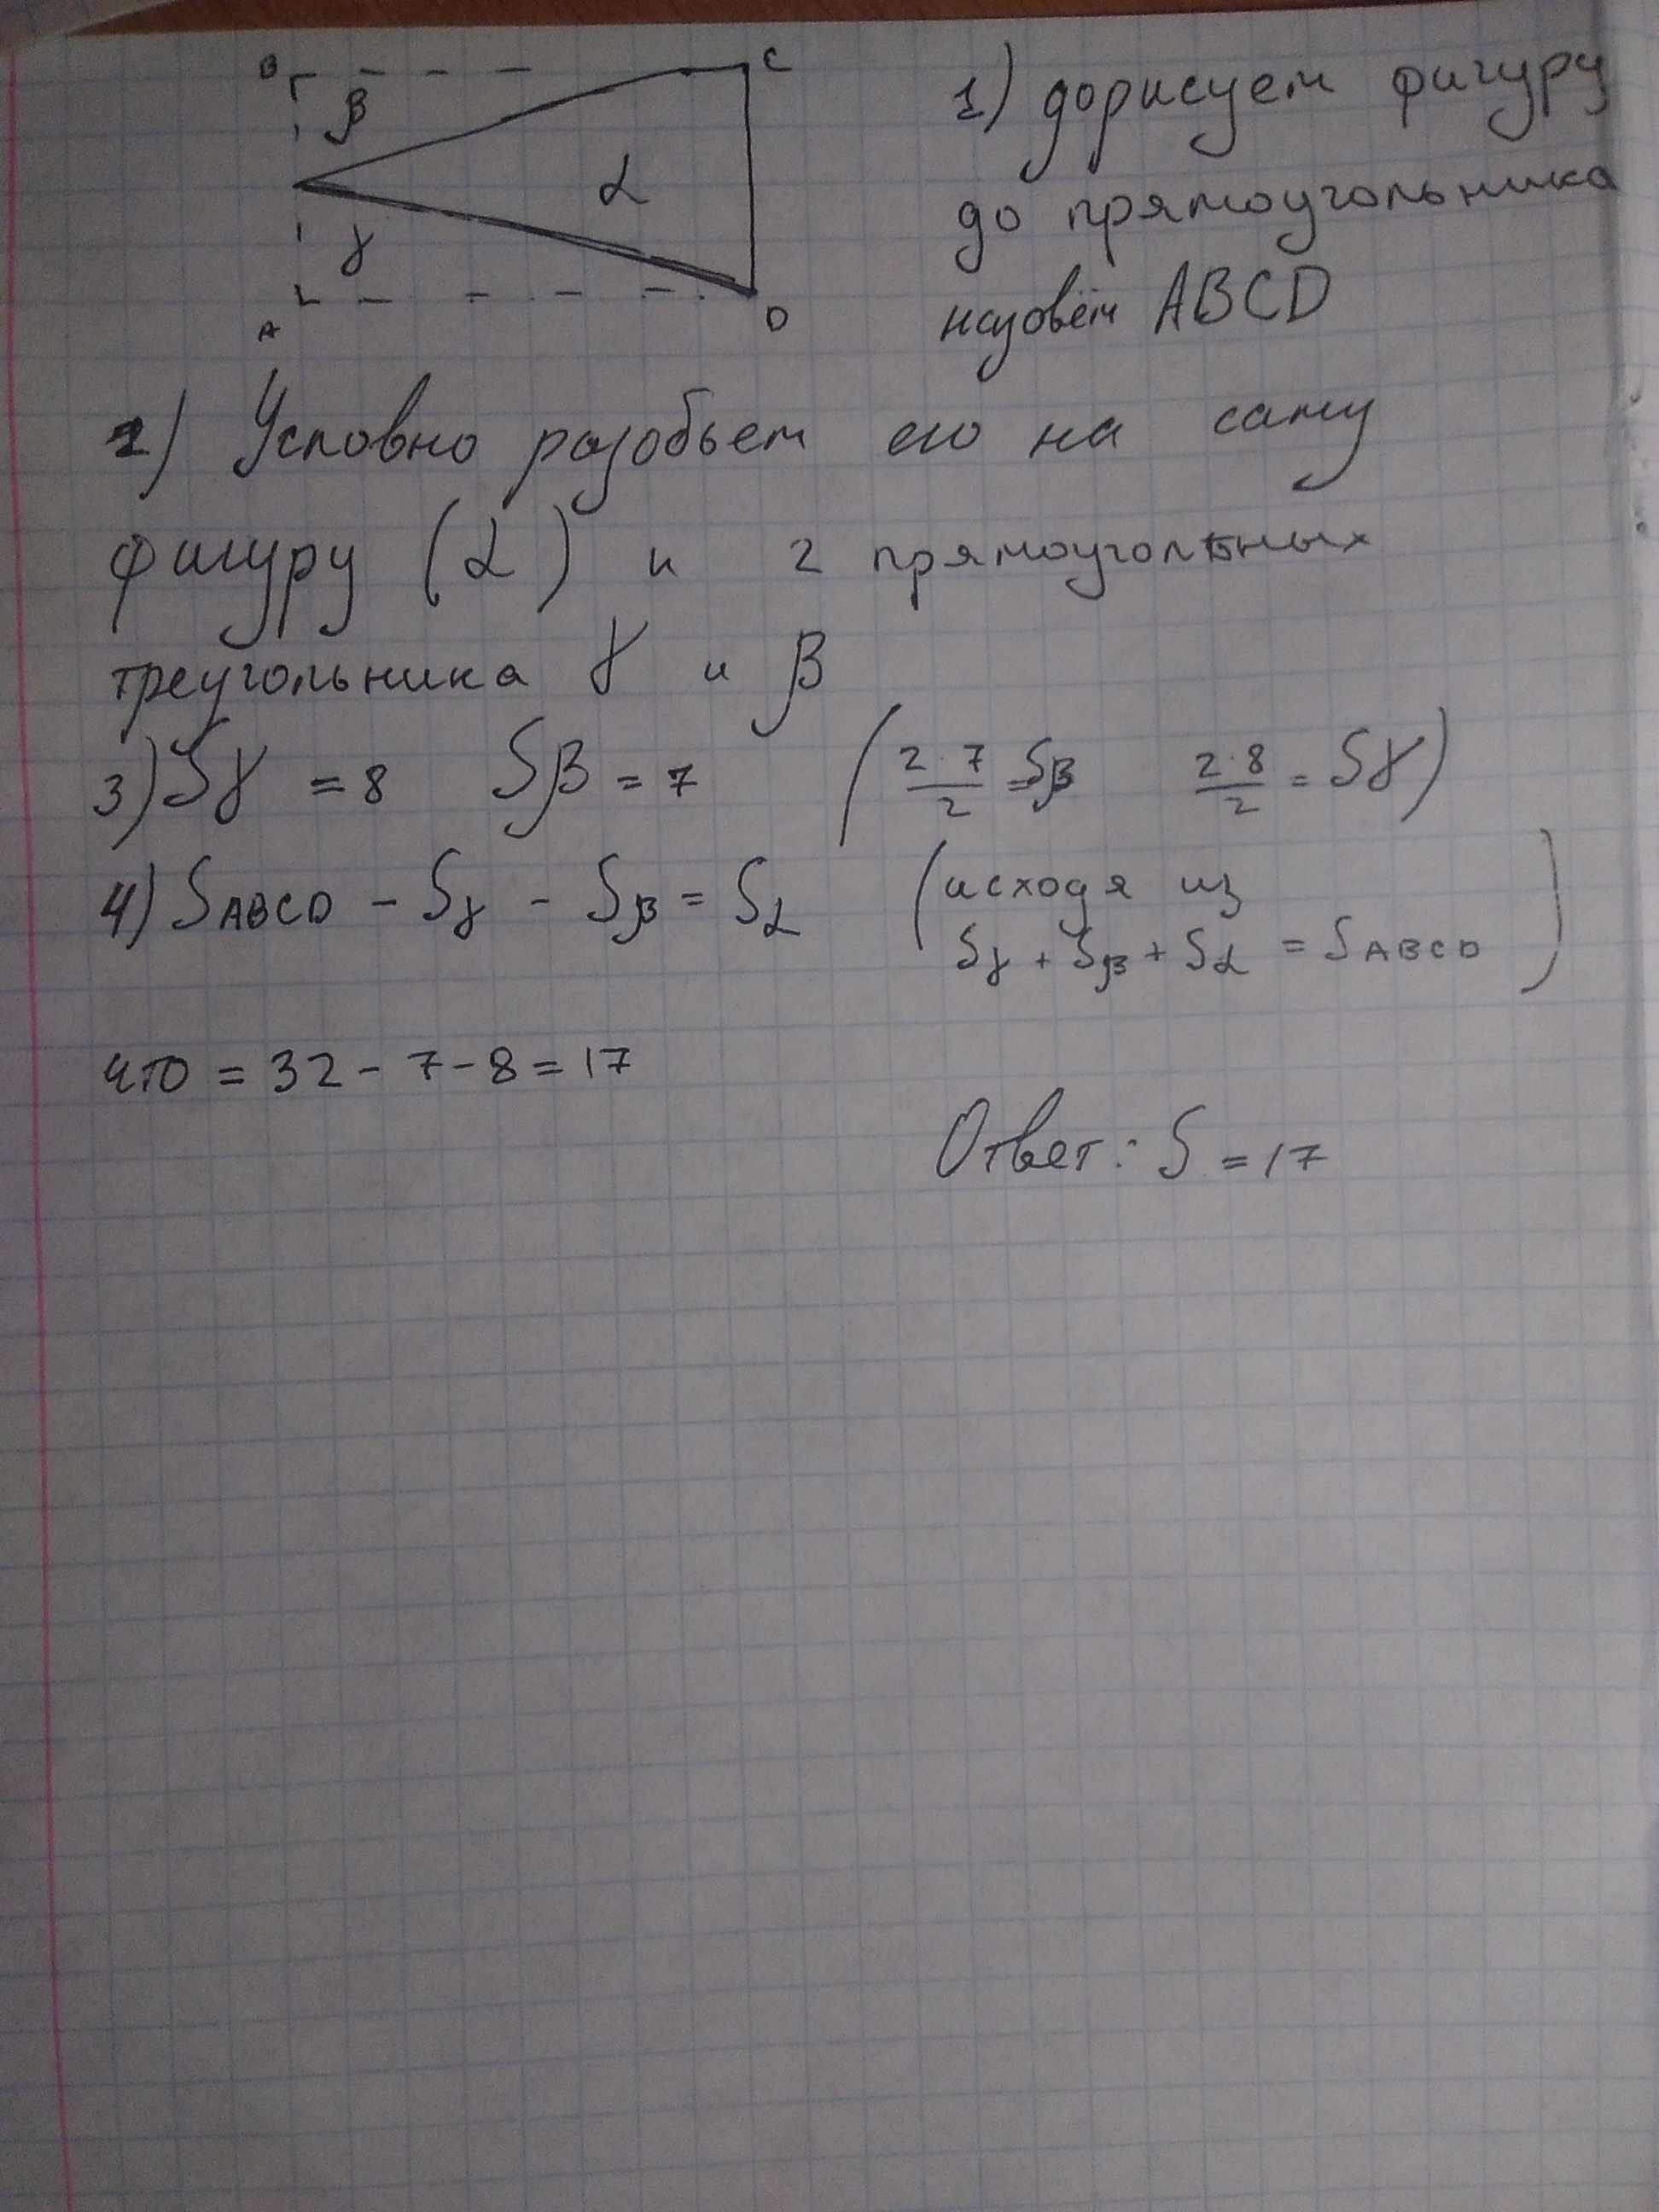 B
C
β
α
γ
A
D
1) дорисуем фигуру
до прямоугольника
назовём ABCD
2) Условно разобьем его на саму
фигуру (α) и 2 прямоугольных
треугольника γ и β
3) Sγ = 8 Sβ = 7 (2·7/2 = Sβ 2·8/2 = Sγ)
4) SABCD - Sγ - Sβ = Sα (исходя из
Sγ + Sβ + Sα = SABCD)
что = 32 - 7 - 8 = 17
Ответ: S = 17